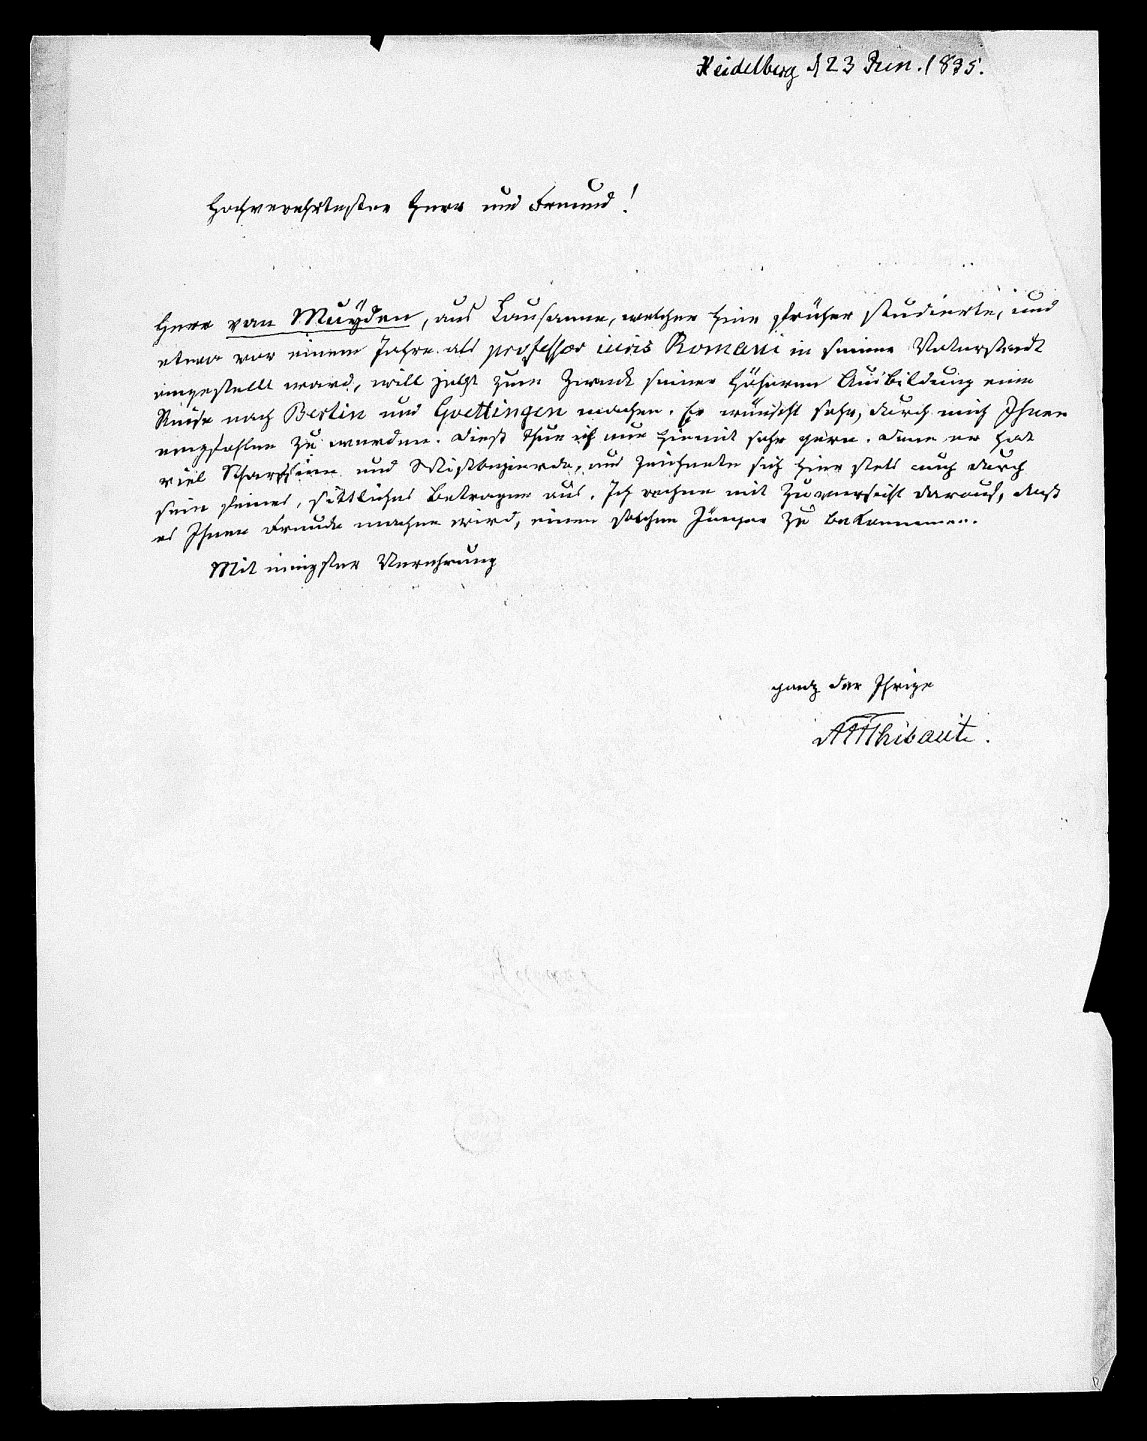 Heidelberg d 23 Jun. 1835.
Hochverehrtester Herr und Freund!
Herr van Muÿden, aus Lausanne, welcher hier früher studierte, und
etwa vor einem Jahre als professor iuris Romani in seiner Vaterstadt
angestellt ward, will jetzt zum Zweck seiner höheren Ausbildung eine
Reise nach Berlin und Goettingen machen. Er wünscht sehr, durch mich Ihnen
empfohlen zu werden. Dieß thue ich nun hiemit sehr gern. Denn er hat
viel Scharfsinn und Wißbegierde, und zeichnete sich hier stets auch durch
sein feines, sittliches Betragen aus. Ich rechne mit Zuversicht darauf, daß
es Ihnen Freude machen wird, einen solchen Jünger zu bekommen.
Mit innigster Verehrung
ganz der Ihrige
AFJThibaut.